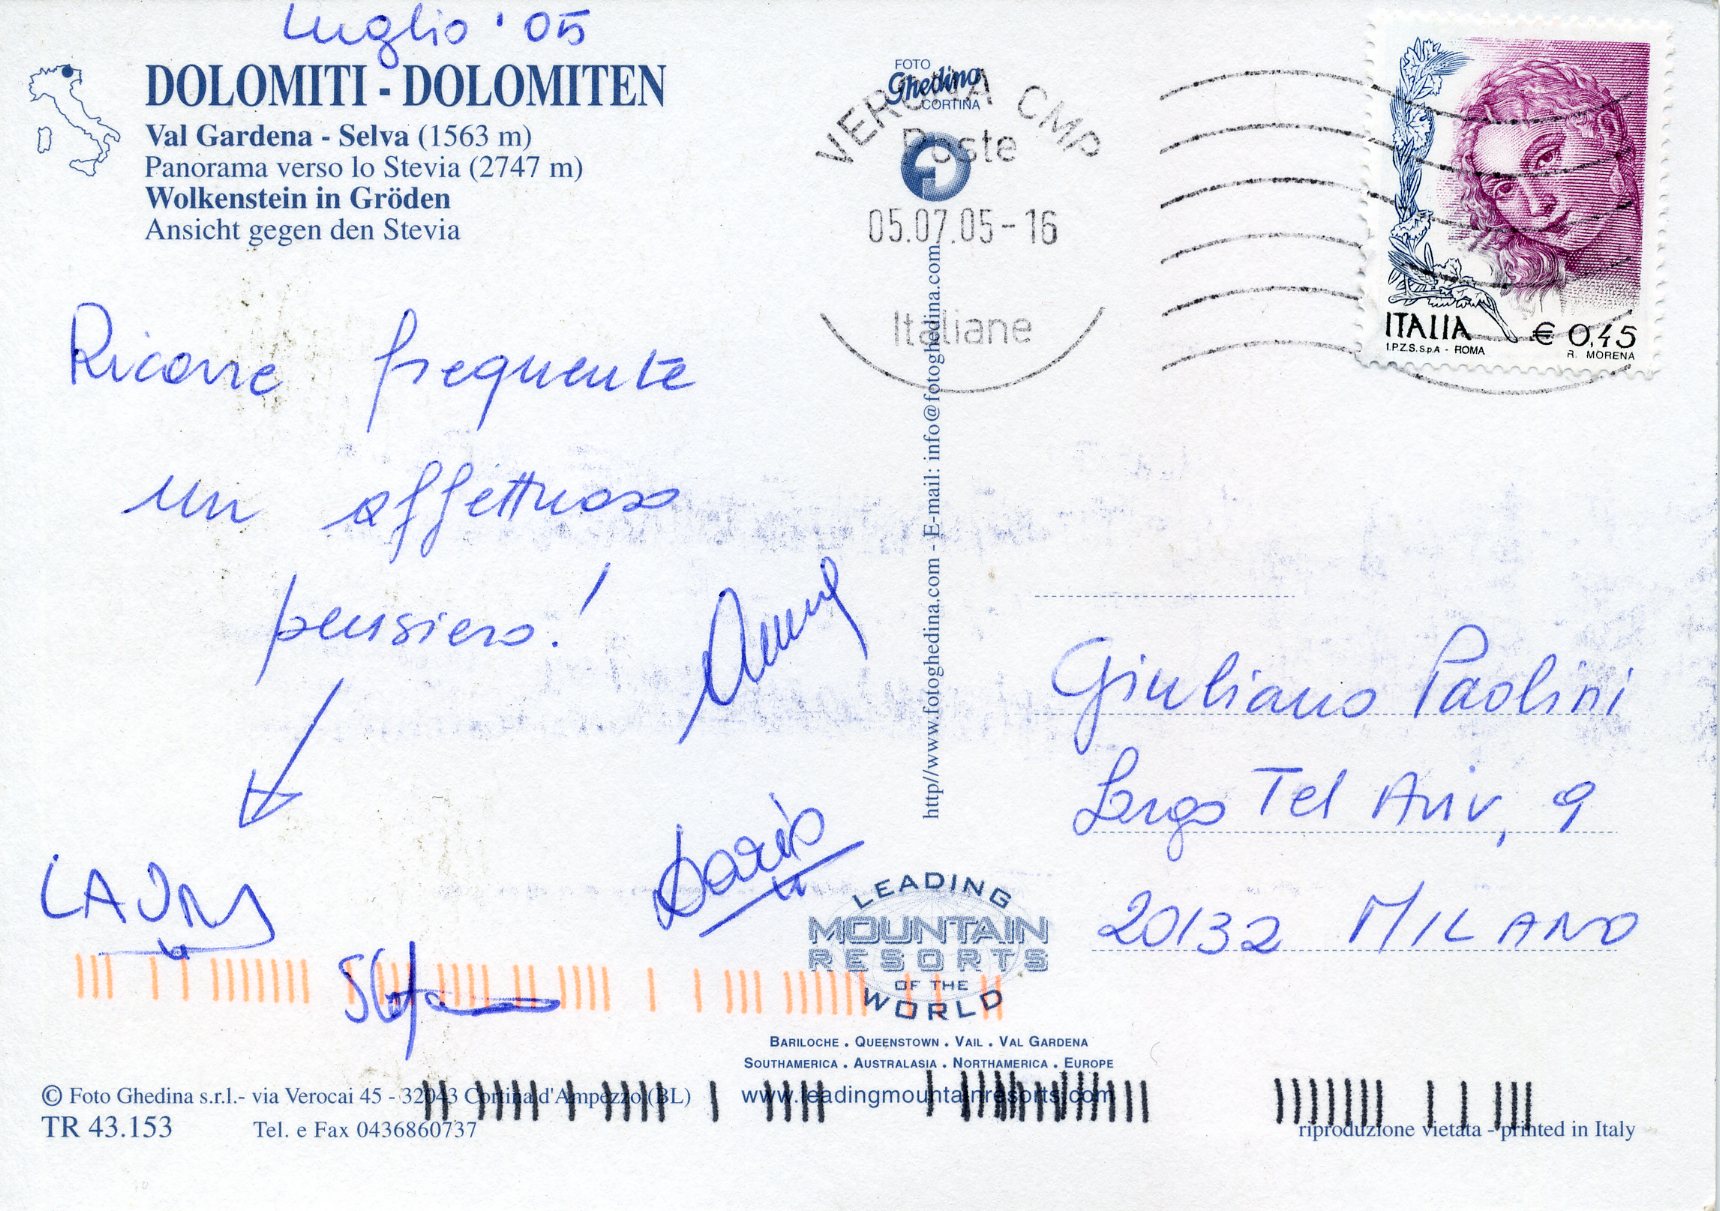 Luglio '05
DOLOMITI - DOLOMITEN
Val Gardena - Selva (1563 m)
Panorama verso lo Stevia (2747 m)
Wolkenstein in Gröden
Ansicht gegen den Stevia
Ricorre frequente
un affettuoso
pensiero!
LAURA
Stefano
Dario
© Foto Ghedina s.r.l.- via Verocai 45 - 32043 Cortina d'Ampezzo (BL)
TR 43.153 Tel. e Fax 0436860737
FOTO
Ghedina
CORTINA
http//www.fotoghedina.com - E-mail: info@fotoghedina.com
VERONA CMP
Poste
05.07.05-16
Italiane
ITALIA € 0,45
I.P.Z.S. S.p.A - ROMA R. MORENA
Giuliano Paolini
Largo Tel Aviv, 9
20132 MILANO
LEADING
MOUNTAIN
RESORTS
OF THE
WORLD
BARILOCHE . QUEENSTOWN . VAIL . VAL GARDENA
SOUTHAMERICA . AUSTRALASIA . NORTHAMERICA . EUROPE
www.leadingmountainresorts.com
riproduzione vietata - printed in Italy